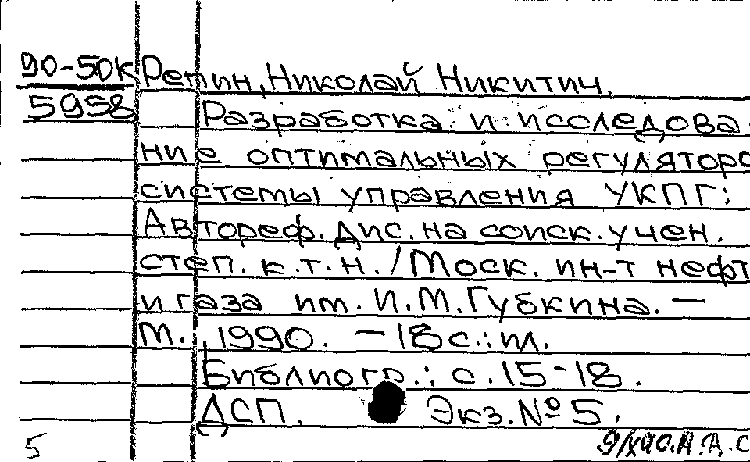 90-50к Репин, Николай Никитич.
5958 Разработка и исследова
ние оптимальных регуляторо
системы управления УКПГ:
Автореф. дис. на соиск. учен.
степ. к.т.н. / Моск. ин-т нефт
и газа им. И.М.Губкина. —
М., 1990. - 18 с.: ил.
Библиогр.: с. 15-18.
ДСП. Экз. № 5.
5